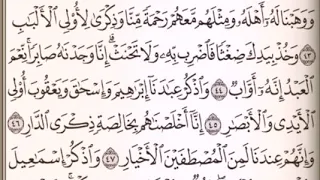 وَوَهَبْنَا لَهُۥٓ أَهْلَهُۥ وَمِثْلَهُم مَّعَهُمْ رَحْمَةً مِّنَّا وَذِكْرَىٰ لِأُو۟لِى ٱلْأَلْبَٰبِ
٤٣ وَخُذْ بِيَدِكَ ضِغْثًا فَٱضْرِب بِّهِۦ وَلَا تَحْنَثْ إِنَّا وَجَدْنَٰهُ صَابِرًا نِّعْمَ
ٱلْعَبْدُ إِنَّهُۥٓ أَوَّابٌ ٤٤ وَٱذْكُرْ عِبَٰدَنَآ إِبْرَٰهِيمَ وَإِسْحَٰقَ وَيَعْقُوبَ أُو۟لِى
ٱلْأَيْدِى وَٱلْأَبْصَٰرِ ٤٥ إِنَّآ أَخْلَصْنَٰهُم بِخَالِصَةٍ ذِكْرَى ٱلدَّارِ ٤٦
وَإِنَّهُمْ عِندَنَا لَمِنَ ٱلْمُصْطَفَيْنَ ٱلْأَخْيَارِ ٤٧ وَٱذْكُرْ إِسْمَٰعِيلَ